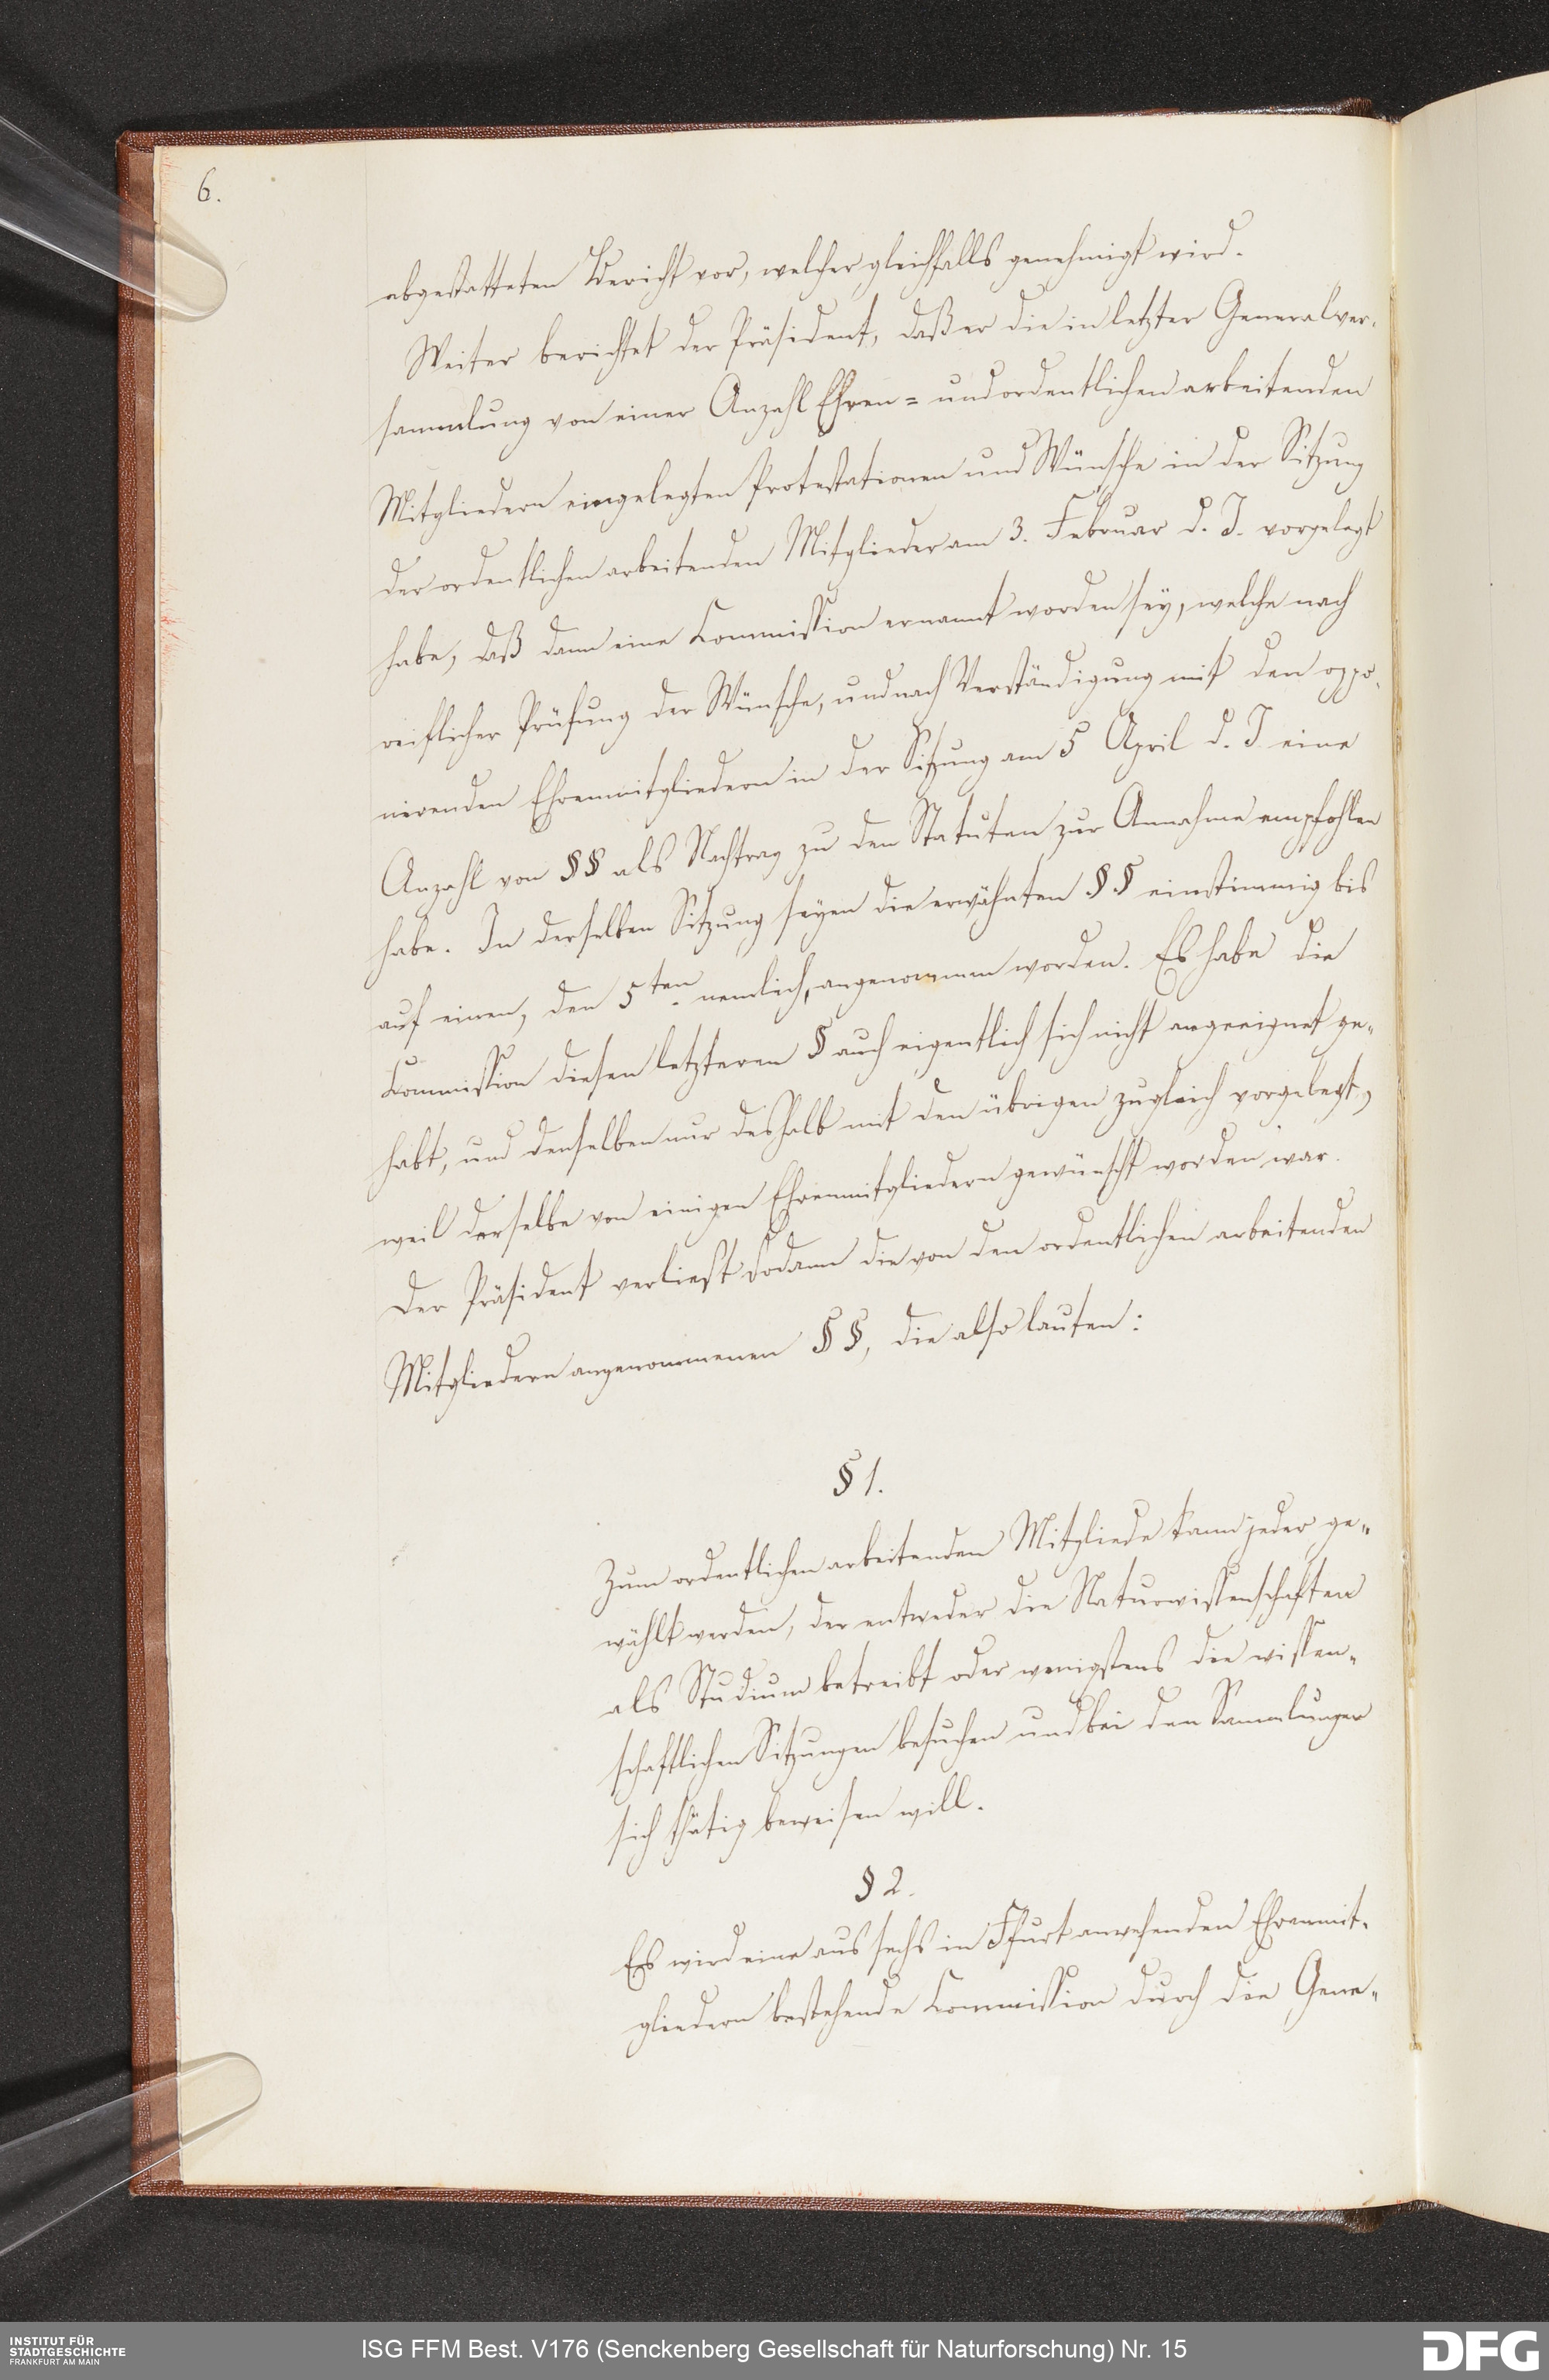 6.
abgestatteten Bericht vor, welcher gleichfalls genehmigt wird.
Weiter berichtet der Präsident, daß er die in letzter Generalver-
sammlung von einer Anzahl Ehren= und ordentlichen arbeitenden
Mitgliedern eingelegten Protestationen und Wünsche in der Sitzung
der ordentlichen arbeitenden Mitglieder am 3. Februar d. J. vorgelegt
habe, daß dann eine Commission ernannt worden sey, welche nach
reiflicher Prüfung der Wünsche, und nach Verständigung mit den oppo-
nirenden Ehrenmitgliedern in der Sitzung am 5 April d. J. eine
Anzahl von §§ als Nachtrag zu den Statuten zur Annahme empfohlen
habe. In derselben Sitzung seyen die erwähnten §§ einstimmig bis
auf einen, den 5ten nemlich, angenommen worden. Es habe die
Commission diesen letzteren § auch eigentlich sich nicht angeeignet ge-
habt, und denselben nur deshalb mit den übrigen zugleich vorgelegt,
weil derselbe von einigen Ehrenmitgliedern gewünscht worden war.
Der Präsident verließt sodann die von den ordentlichen arbeitenden
Mitgliedern angenommenen §§, die also lauten:
§ 1.
Zum ordentlichen arbeitenden Mitgliede kann jeder ge-
wählt werden, der entweder die Naturwissenschaften
als Studium betreibt oder wenigstens die wissen-
schaftlichen Sitzungen besuchen und bei den Sammlungen
sich thätig beweisen will.
§ 2.
Es wird eine aus sechs in Ffurt anwesenden Ehrenmit-
gliedern bestehende Commission durch die Gene-
INSTITUT FÜR
STADTGESCHICHTE
FRANKFURT AM MAIN
ISG FFM Best. V176 (Senckenberg Gesellschaft für Naturforschung) Nr. 15
DFG